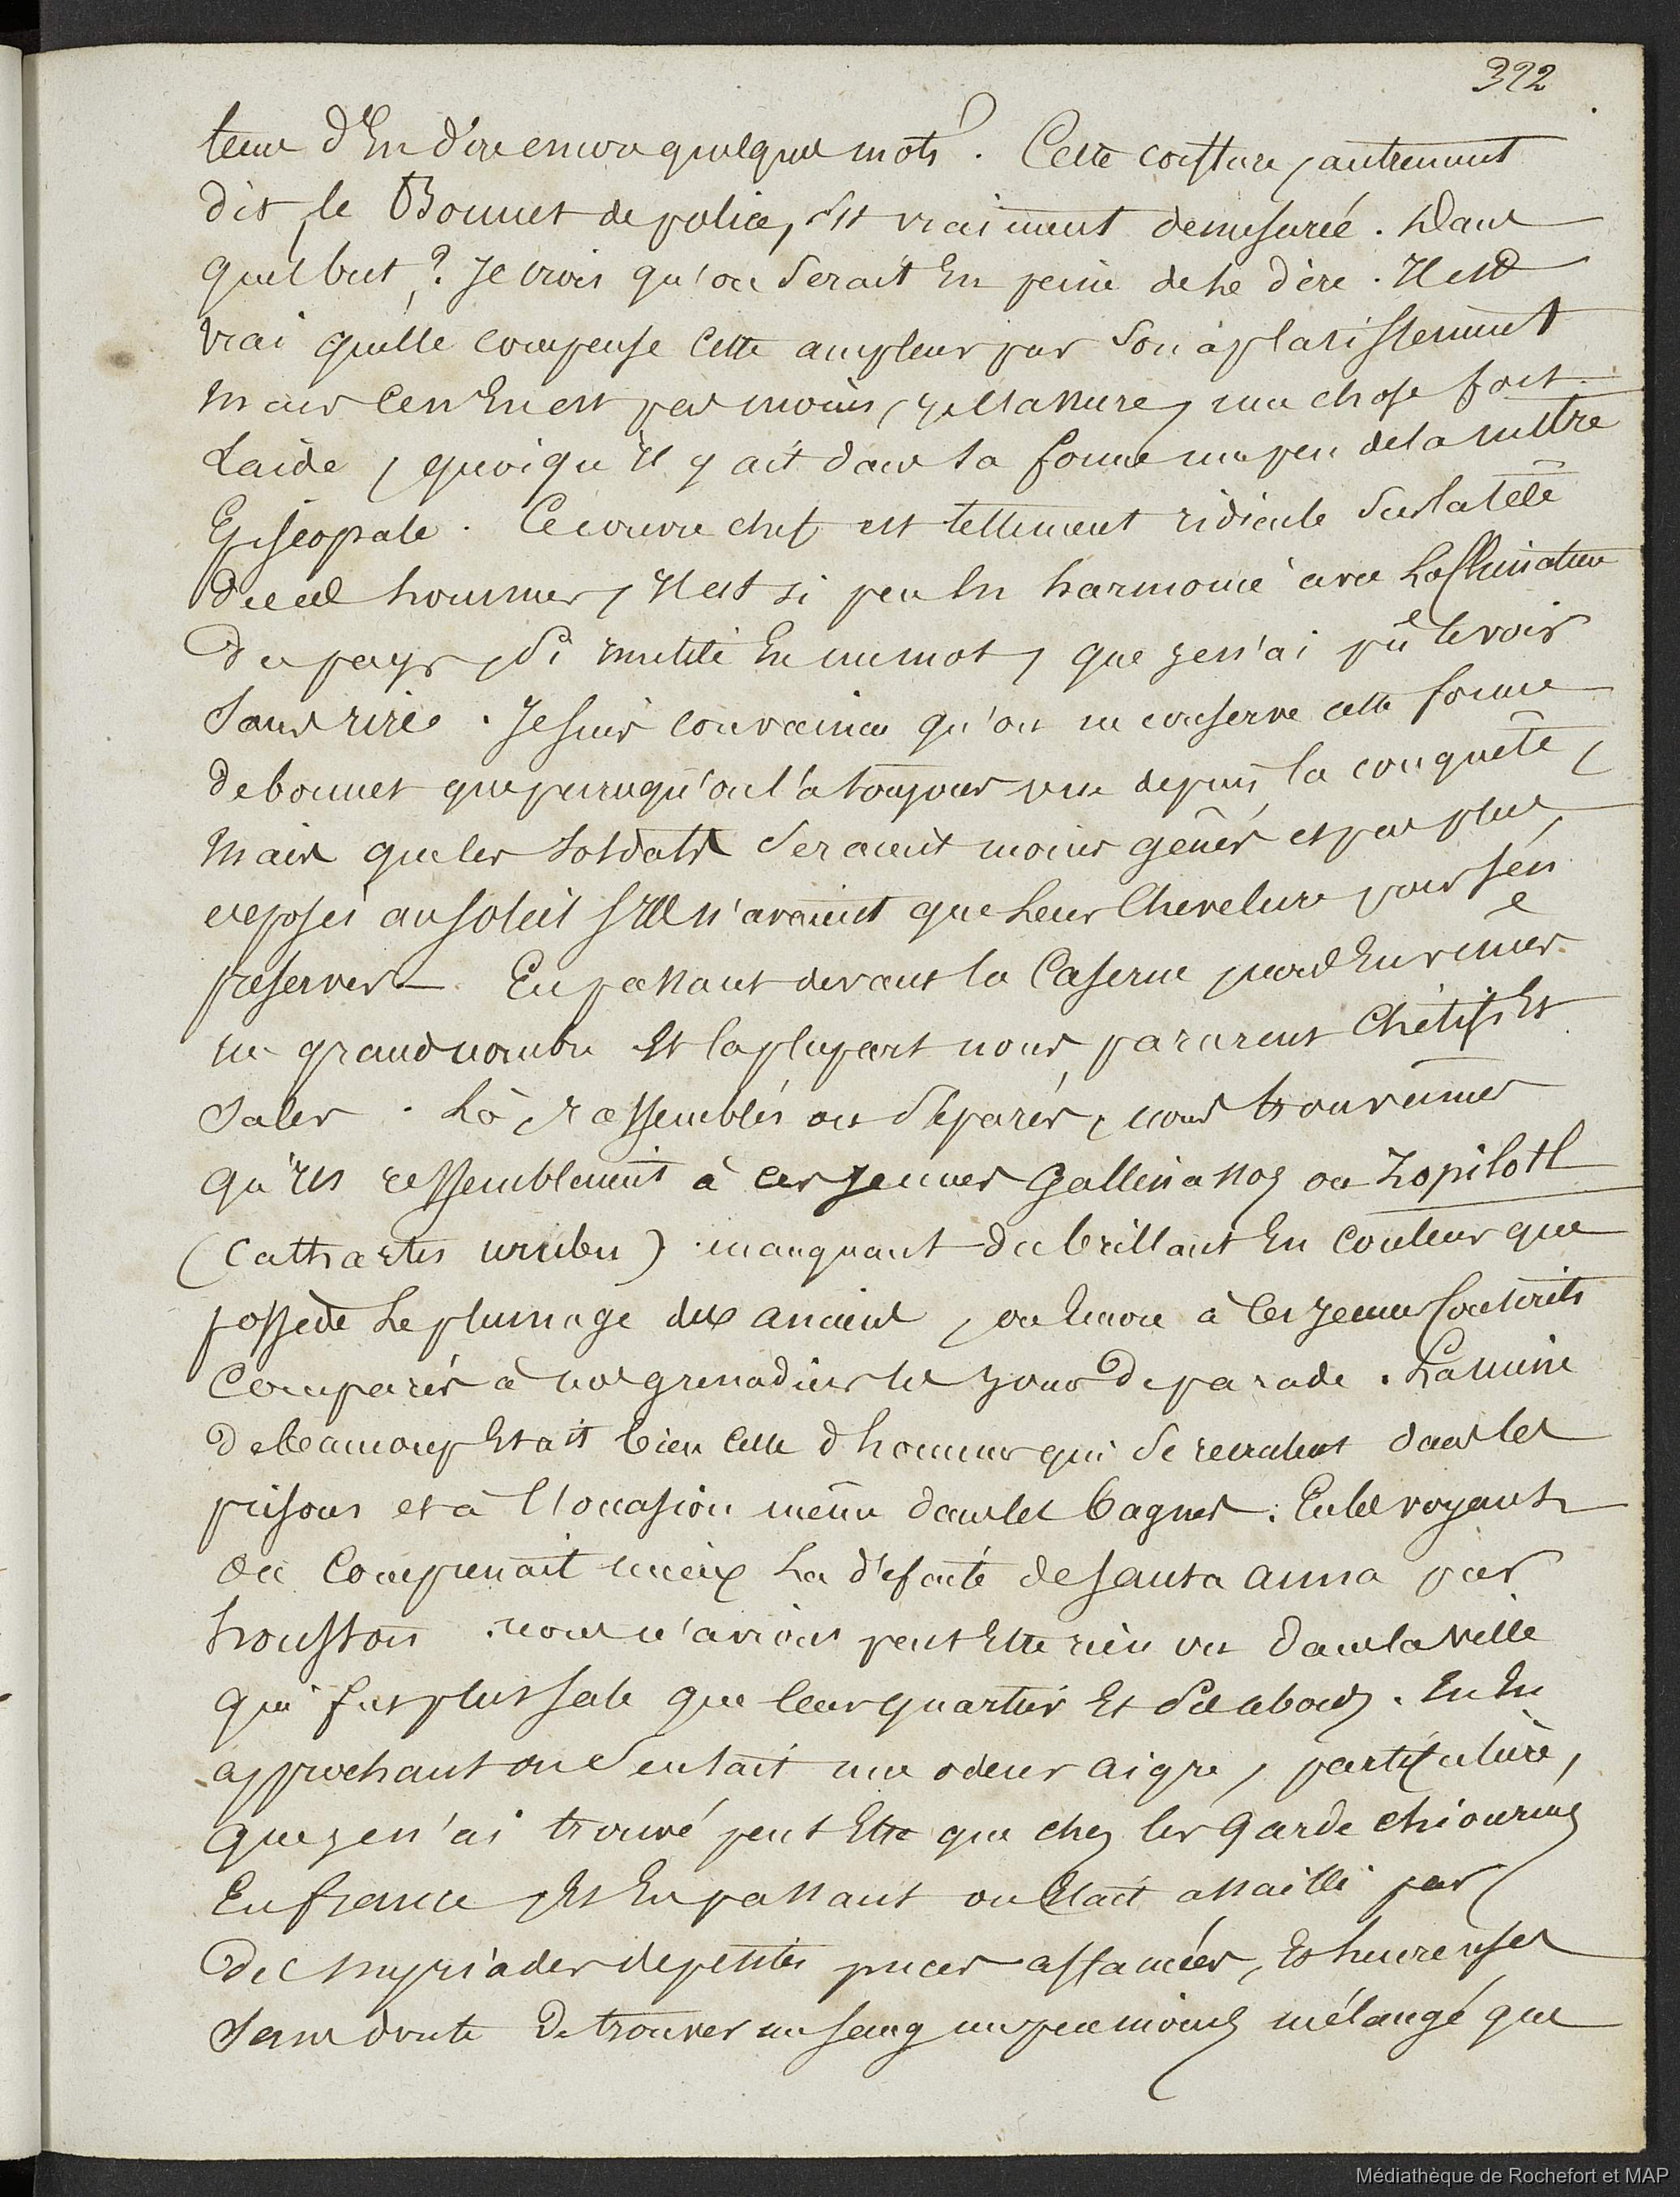 322
d'En dire encore quelques mots. Cette coiffure, autrement
dit, le Bonnet de police, Est vraiment demesurée. Dans
quel but ? Je crois qu'on Serait En peine de le dire. Il est
vrai qu'elle compense Cette ampleur par Son aplatissement
mais Ce n'En est pas moins, je l'assure, une chose fort
Laide, quoiqu'Il y ait dans sa forme un peu de la mitre
Episcopale. Ce couvre chef est tellement ridicule Sur la tête
de ces hommes, Il est si peu En harmonie avec La
Du pays, Si inutile En un mot, que je n'ai pû le voir
Sans rire. Je suis convaincu qu'on ne conserve cette forme
De bonnet que parcequ'on l'a toujours vue depuis la conquête,
mais que les Soldats Seraient moins gênés et pas plus,
exposés au soleil s'Ils n'avaient que Leur Chevelure pour s'en
preserver. En passant devant la Caserne nous En vîmes
un grand nombre Et la plupart nous parurent Chétifs Et
Sales. Là, rassemblés ou Separés, nous trouvâmes
qu'Ils ressemblaient à ces jeunes Gallinassos ou Zopilotl
(Cathartes urubu) manquant du brillant En couleur que
possède Le plumage des anciens, ou Encore à Ces jeunes Conscrits
Comparés à nos grenadiers les jours De parade. La mine
De beaucoup Etait bien Celle d'hommes qui Se recrutent dans les
prisons et à l'occasion même dans les bagnes. En les voyant
On Comprenait mieux La défaite de Santa anna par
houston. nous n'avions peut Etre rien vu dans la ville
qui fut plus Sale que leur quartier Et Ses abords. En En
approchant on Sentait une odeur aigre, particulière,
que je n'ai trouvé peut Etre que chez les Garde chiourmes
En france, Et En passant on Etait assailli par
Des myriades de petites puces affamées, Et heureuses
Sans doute De trouver un sang un peu moins mélangé que
Médiathèque de Rochefort et MAP